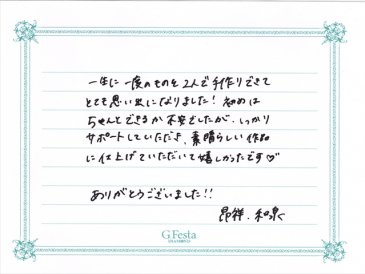 一生に一度のものを2人で手作りできて
とても思い出になりました！初めは
ちゃんとできるか不安でしたが、しっかり
サポートしていただき、素晴らしい作品
に仕上げていただいて嬉しかったです♡
ありがとうございました!!
昂祥・和泉
G.Festa